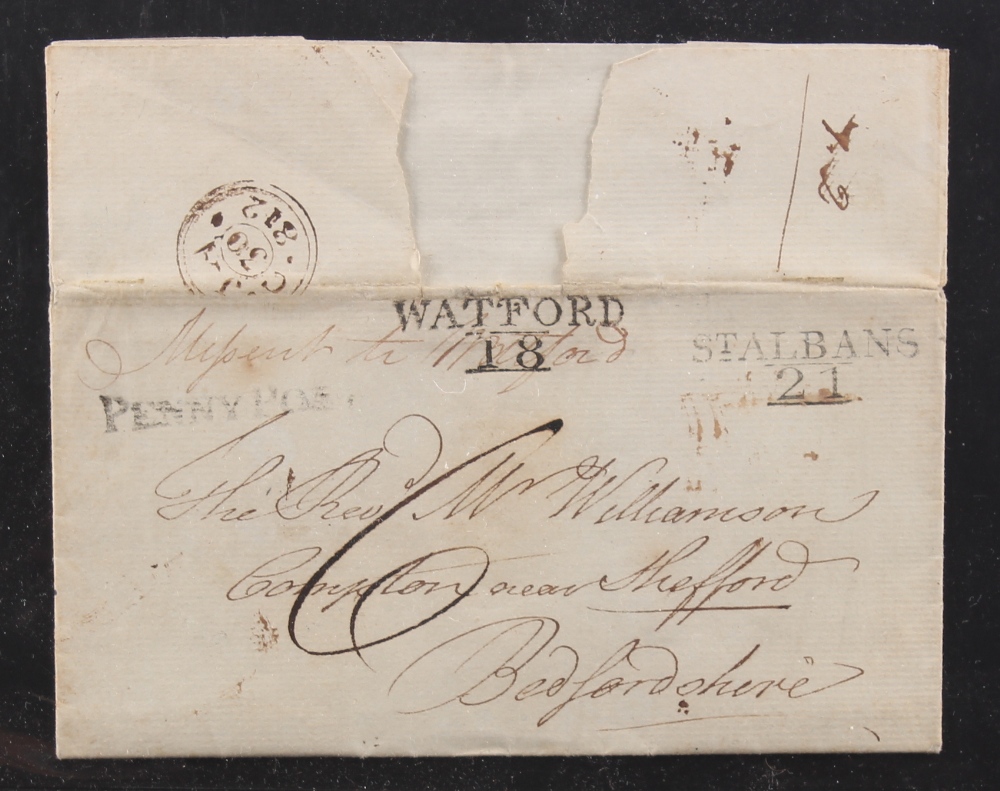 812
30
WATFORD
18
Missent to Watford
ST ALBANS
21
PENNY POS
6
The Revd Mr Williamson
Compton near Shefford
Bedfordshire